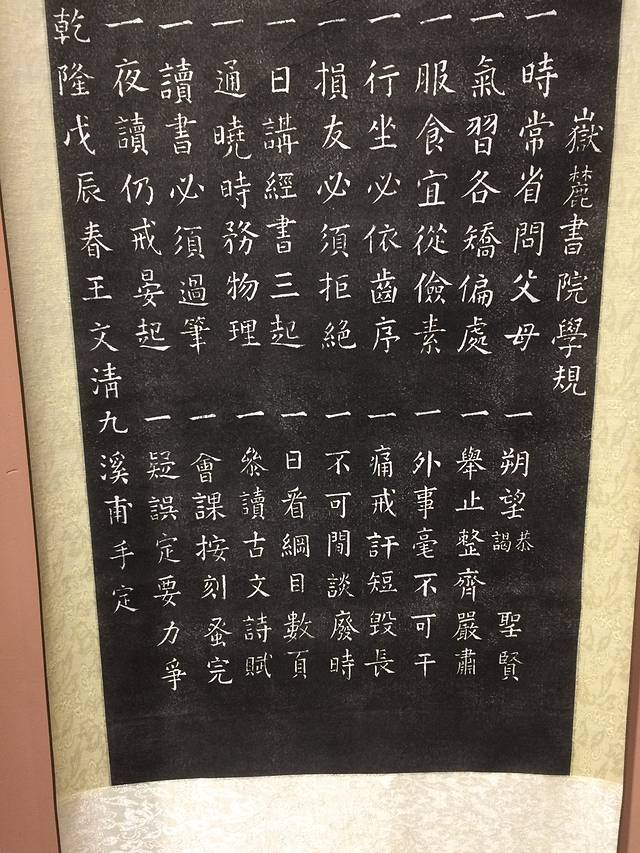 嶽麓書院學規
一時常省問父母 一朔望恭謁 聖賢
一氣習各矯偏處 一舉止整齊嚴肅
一服食宜從儉素 一外事毫不可干
一行坐必依齒序 一痛戒訐短毀長
一損友必須拒絕 一不可閒談廢時
一日講經書三起 一日看綱目數頁
一通曉時務物理 一叅讀古文詩賦
一讀書必須過筆 一會課按刻蚤完
一夜讀仍戒晏起 一疑誤定要力爭
乾隆戊辰春王文清九溪甫手定